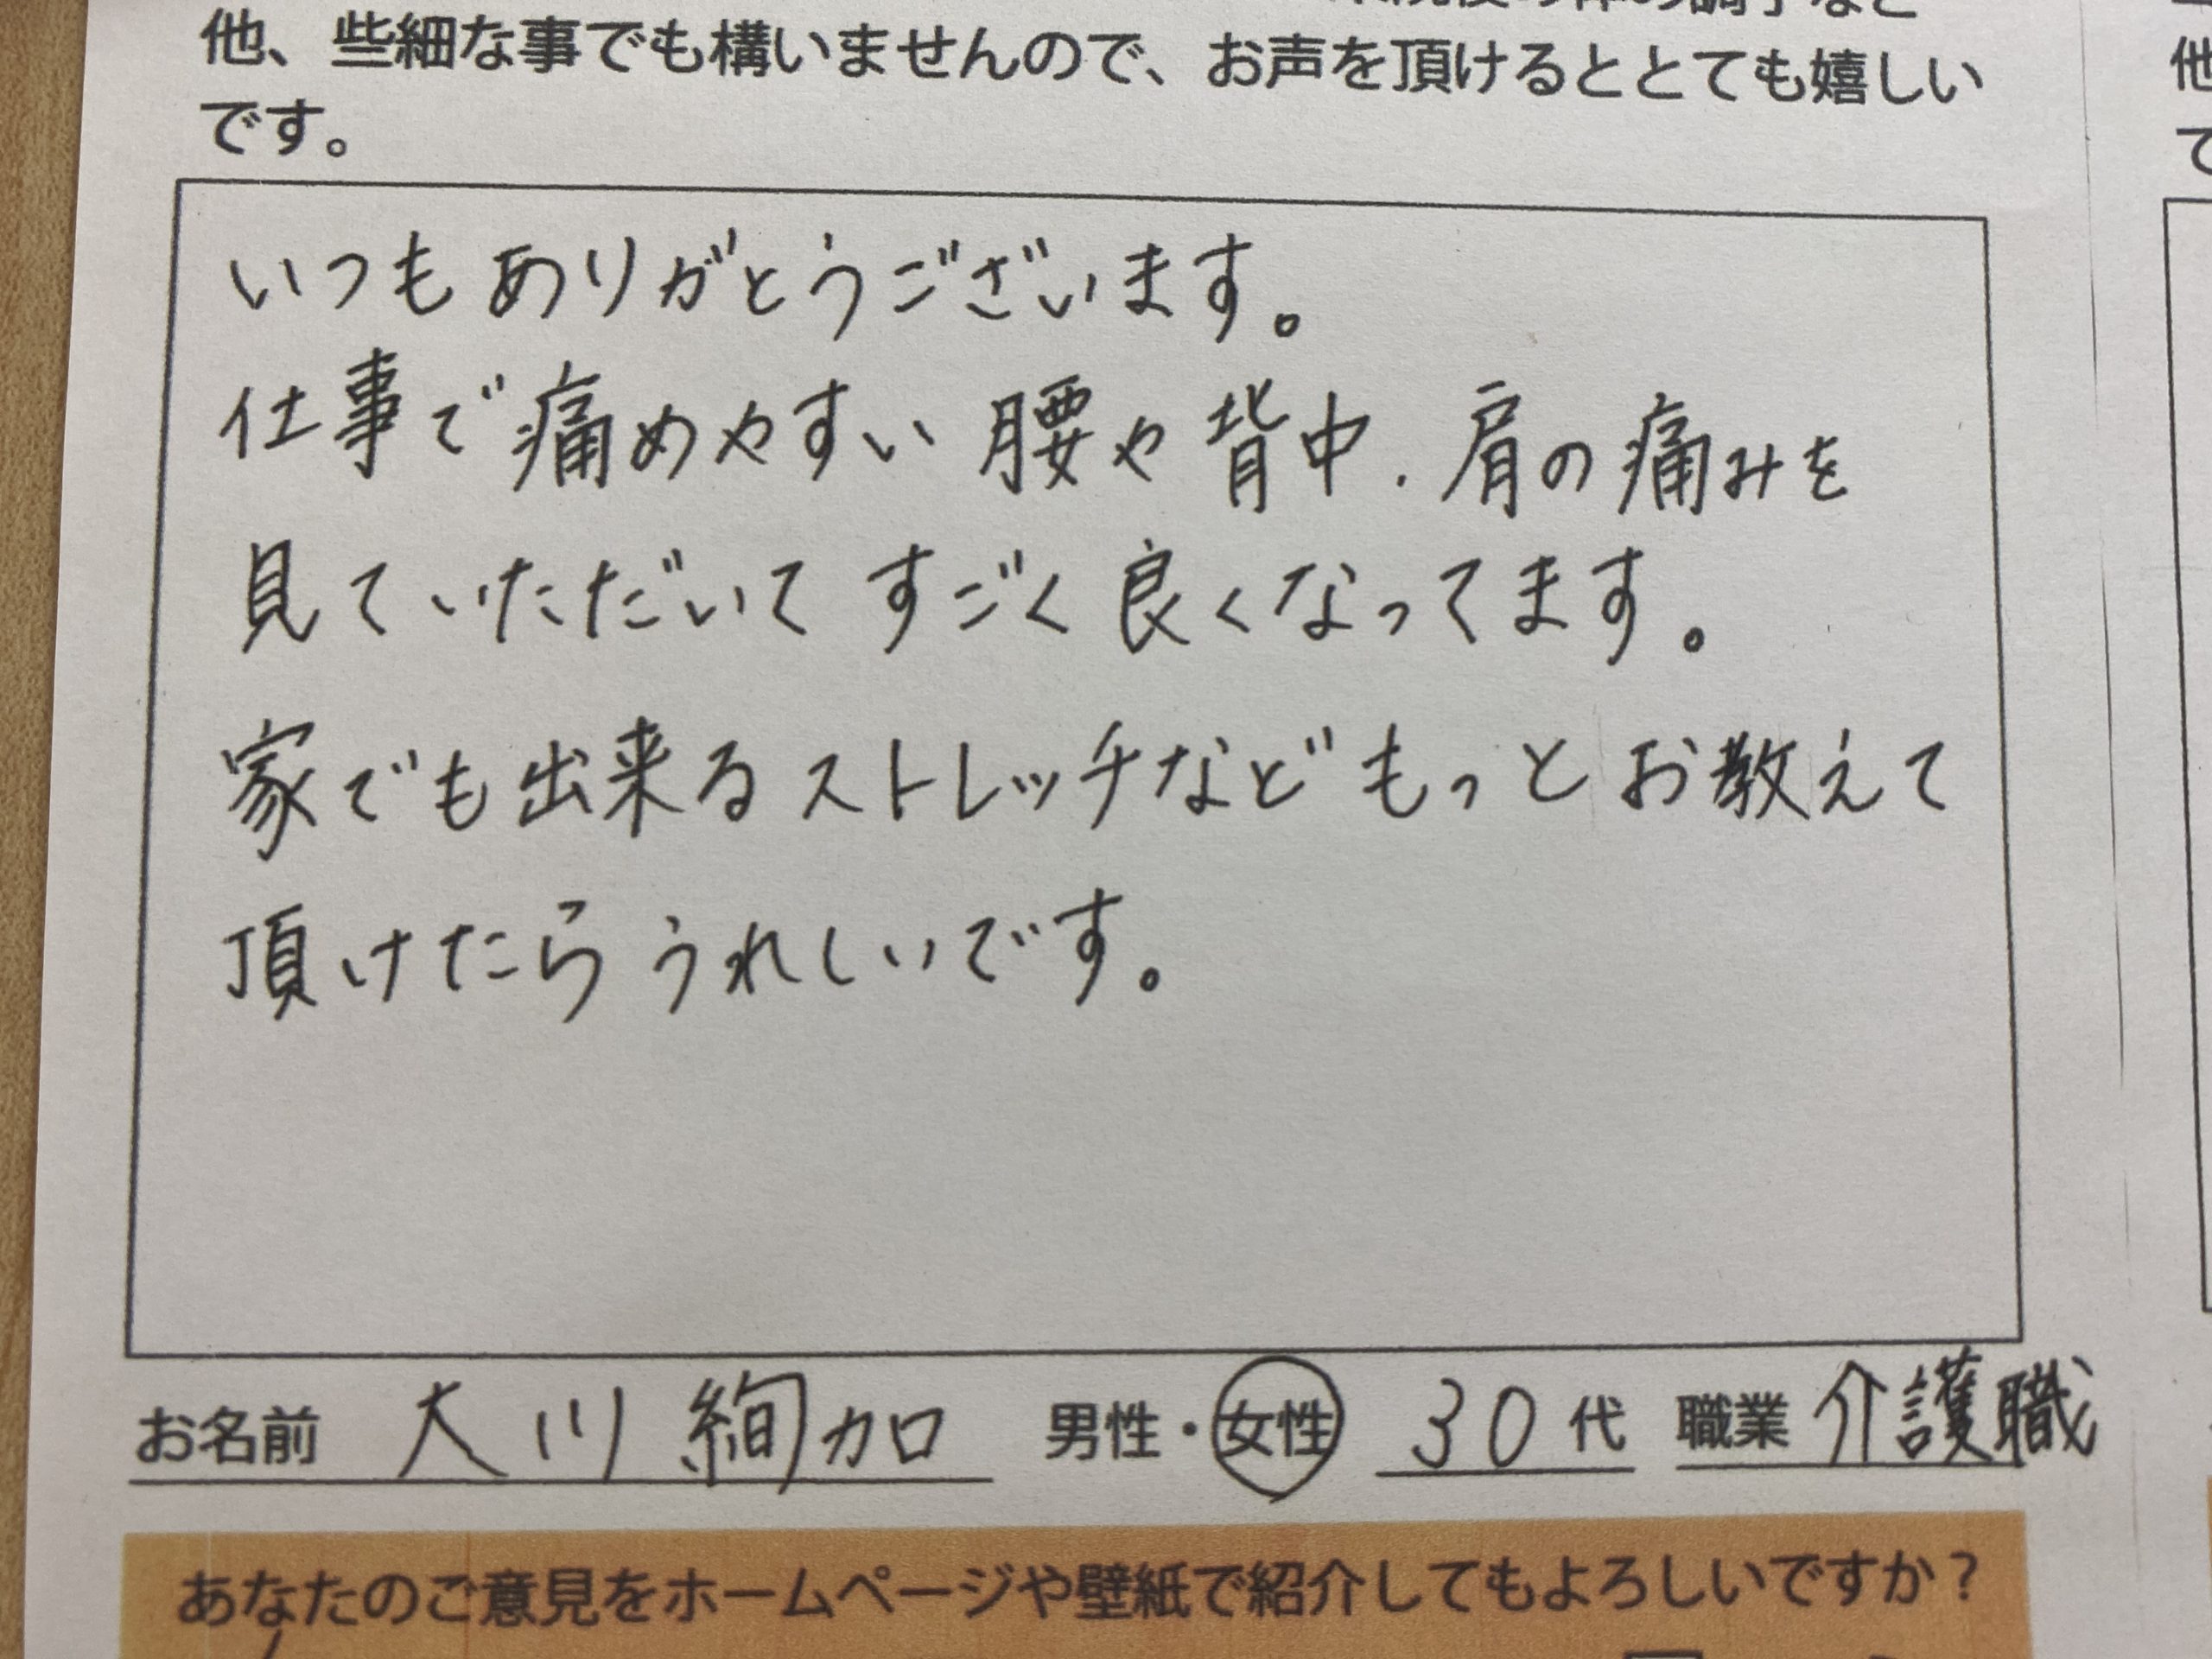 他、些細な事でも構いませんので、お声を頂けるととても嬉しい
です。
いつもありがとうございます。
仕事で痛めやすい腰や背中、肩の痛みを
見ていただいてすごく良くなってます。
家でも出来るストレッチなどもっとお教えて
頂けたらうれしいです。
お名前 大川 絢加 男性・女性 30代 職業 介護職
あなたのご意見をホームページや壁紙で紹介してもよろしいですか？